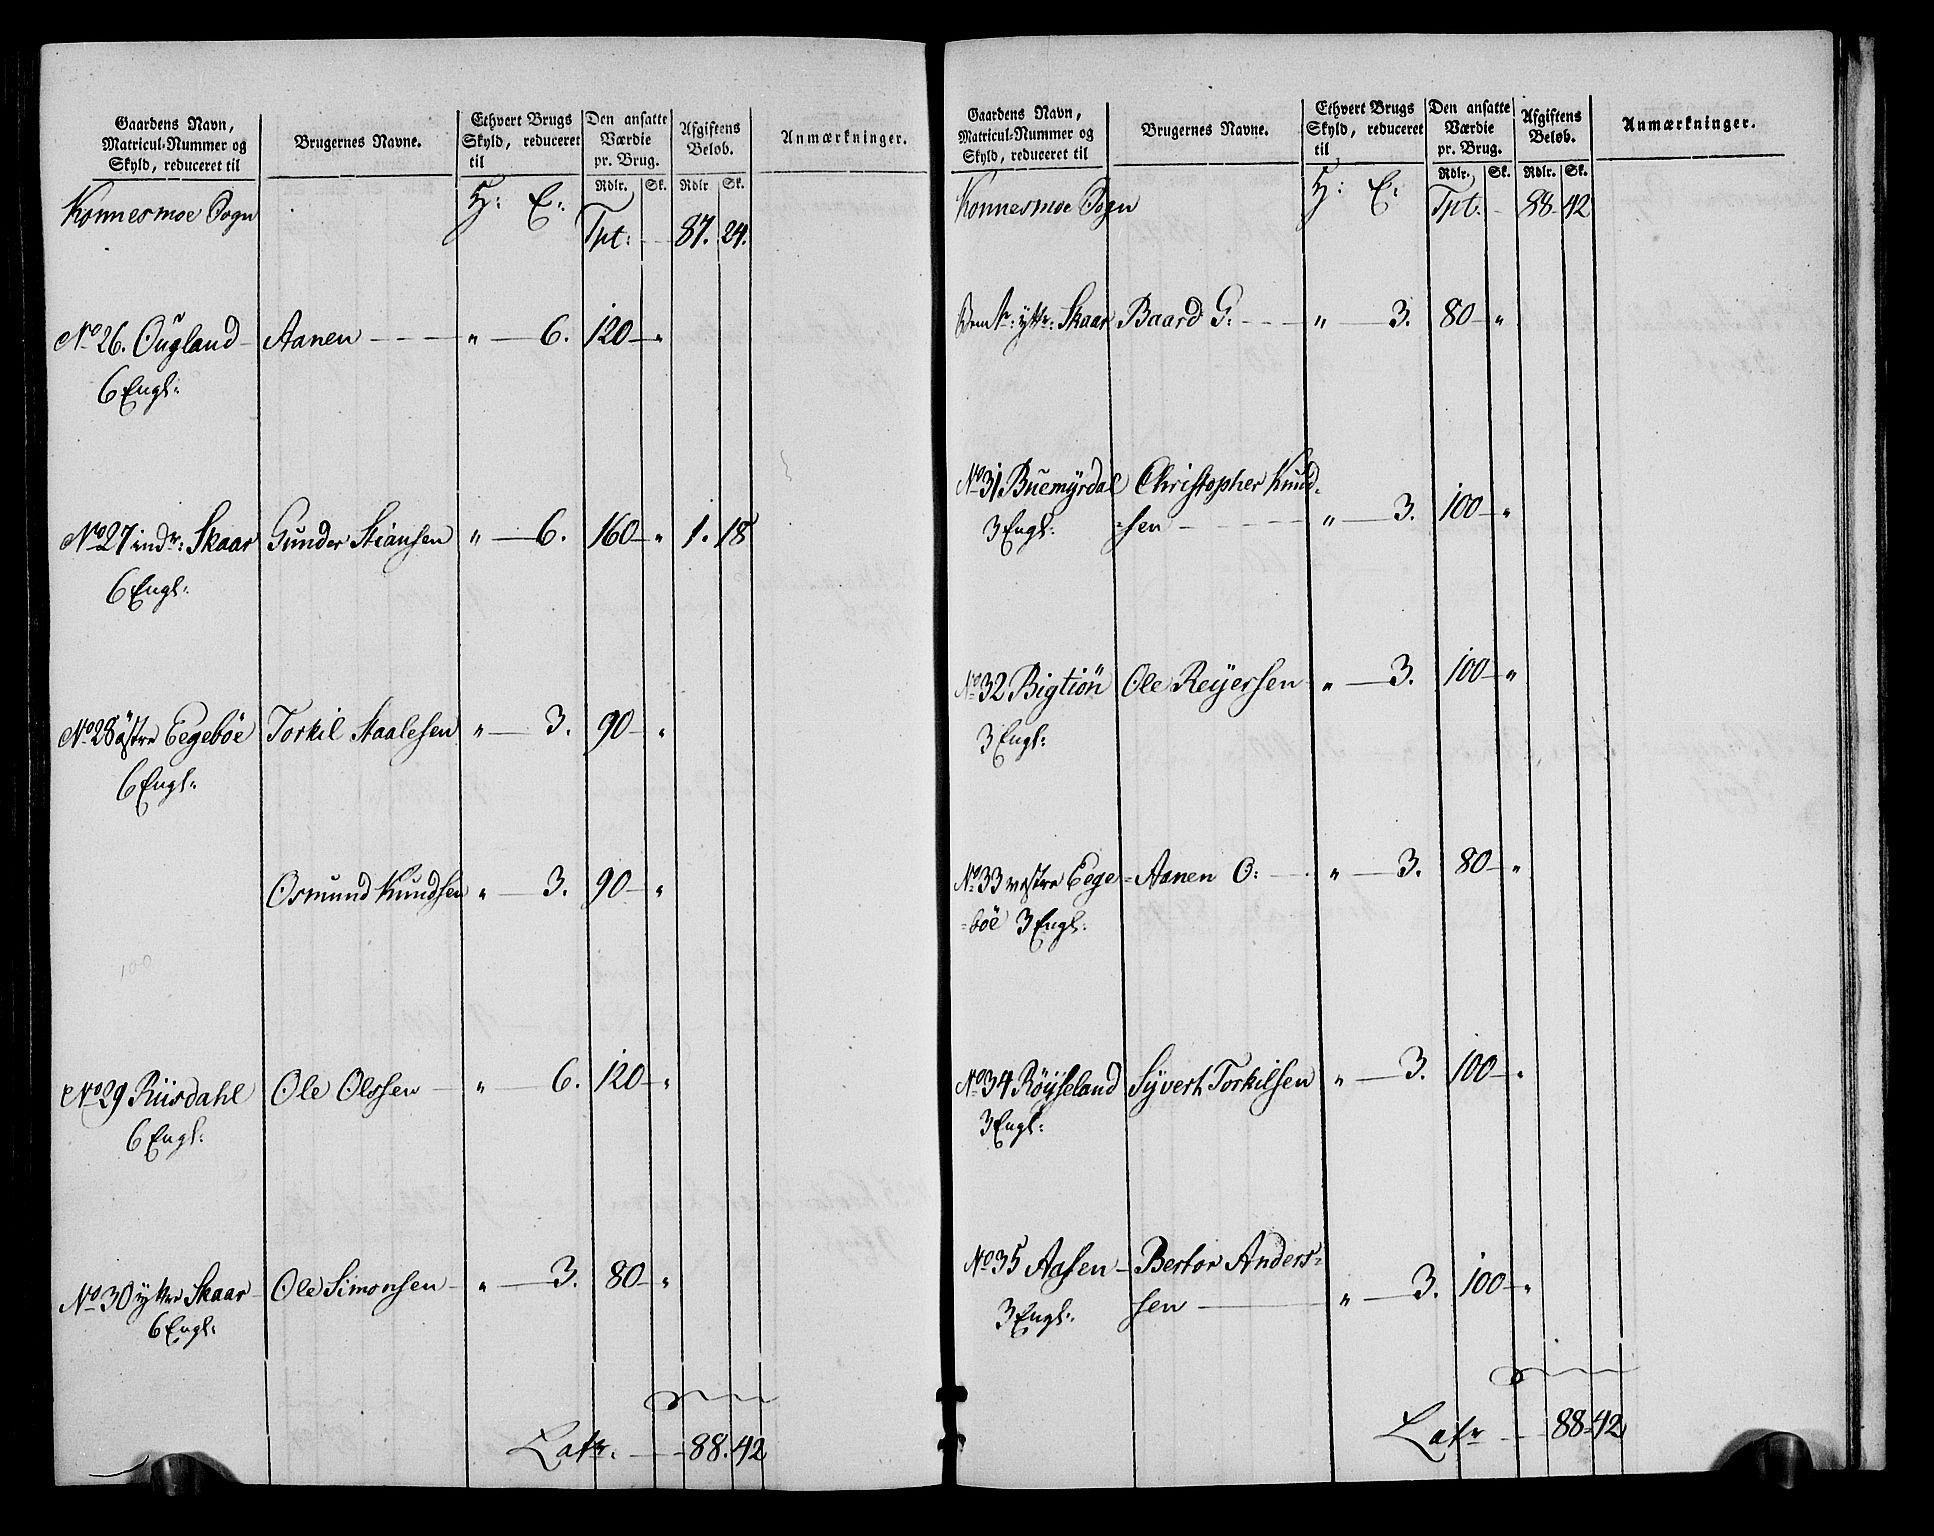 Gaardens Navn,
Matricul-Nummer og
Skyld, reduceret til
Brugernes Navne.
Ethvert Brugs
Skyld, reduceret
til
Den ansatte
Værdie
pr. Brug.
Afgiftens
Beløb.
Anmærkninger.
Rdlr. Sk. Rdlr Sk.
Konnesmoe Sogn H: E: Tpt: 87. 24.
No 26. Ougland Aanen " 6. 120 "
6 Engl:
No 27 indr: Skaar Gunder Stiansen " 6. 160 " 1. 18
6 Engl:
No 28 östre Eegeböe Torkil Staalesen " 3. 90 "
6 Engl:
Osmund Knudsen " 3. 90 "
100
No 29 Riisdahl Ole Olssen " 6. 120 "
6 Engl:
No 30 yttre Skaar Ole Simonsen " 3. 80 "
6 Engl:
Latr. 88. 42
Gaardens Navn,
Matricul-Nummer og
Skyld, reduceret til
Brugernes Navne.
Ethvert Brugs
Skyld, reduceret
til
Den ansatte
Værdie
pr. Brug.
Afgiftens
Beløb.
Anmærkninger.
Rdlr. Sk. Rdlr. Sk.
Konnesmoe Sogn H: E: Tpt. 88 42
yttr: Skaar Baard G: " 3. 80 "
No 31 Buemyrdal Christopher Knud-
3 Engl: =sen " 3. 100 "
No 32 Bigtiön Ole Reyersen " 3. 100 "
3 Engl:
No 33 vestre Eege= Aanen O: " 3. 80 "
=böe 3 Engl:
No 34 Röyseland Syvert Torkilsen " 3. 100 "
3 Engl:
No 35 Aasen Bertor Anders=
3 Engl: sen " 3. 100 "
Latr 88 42